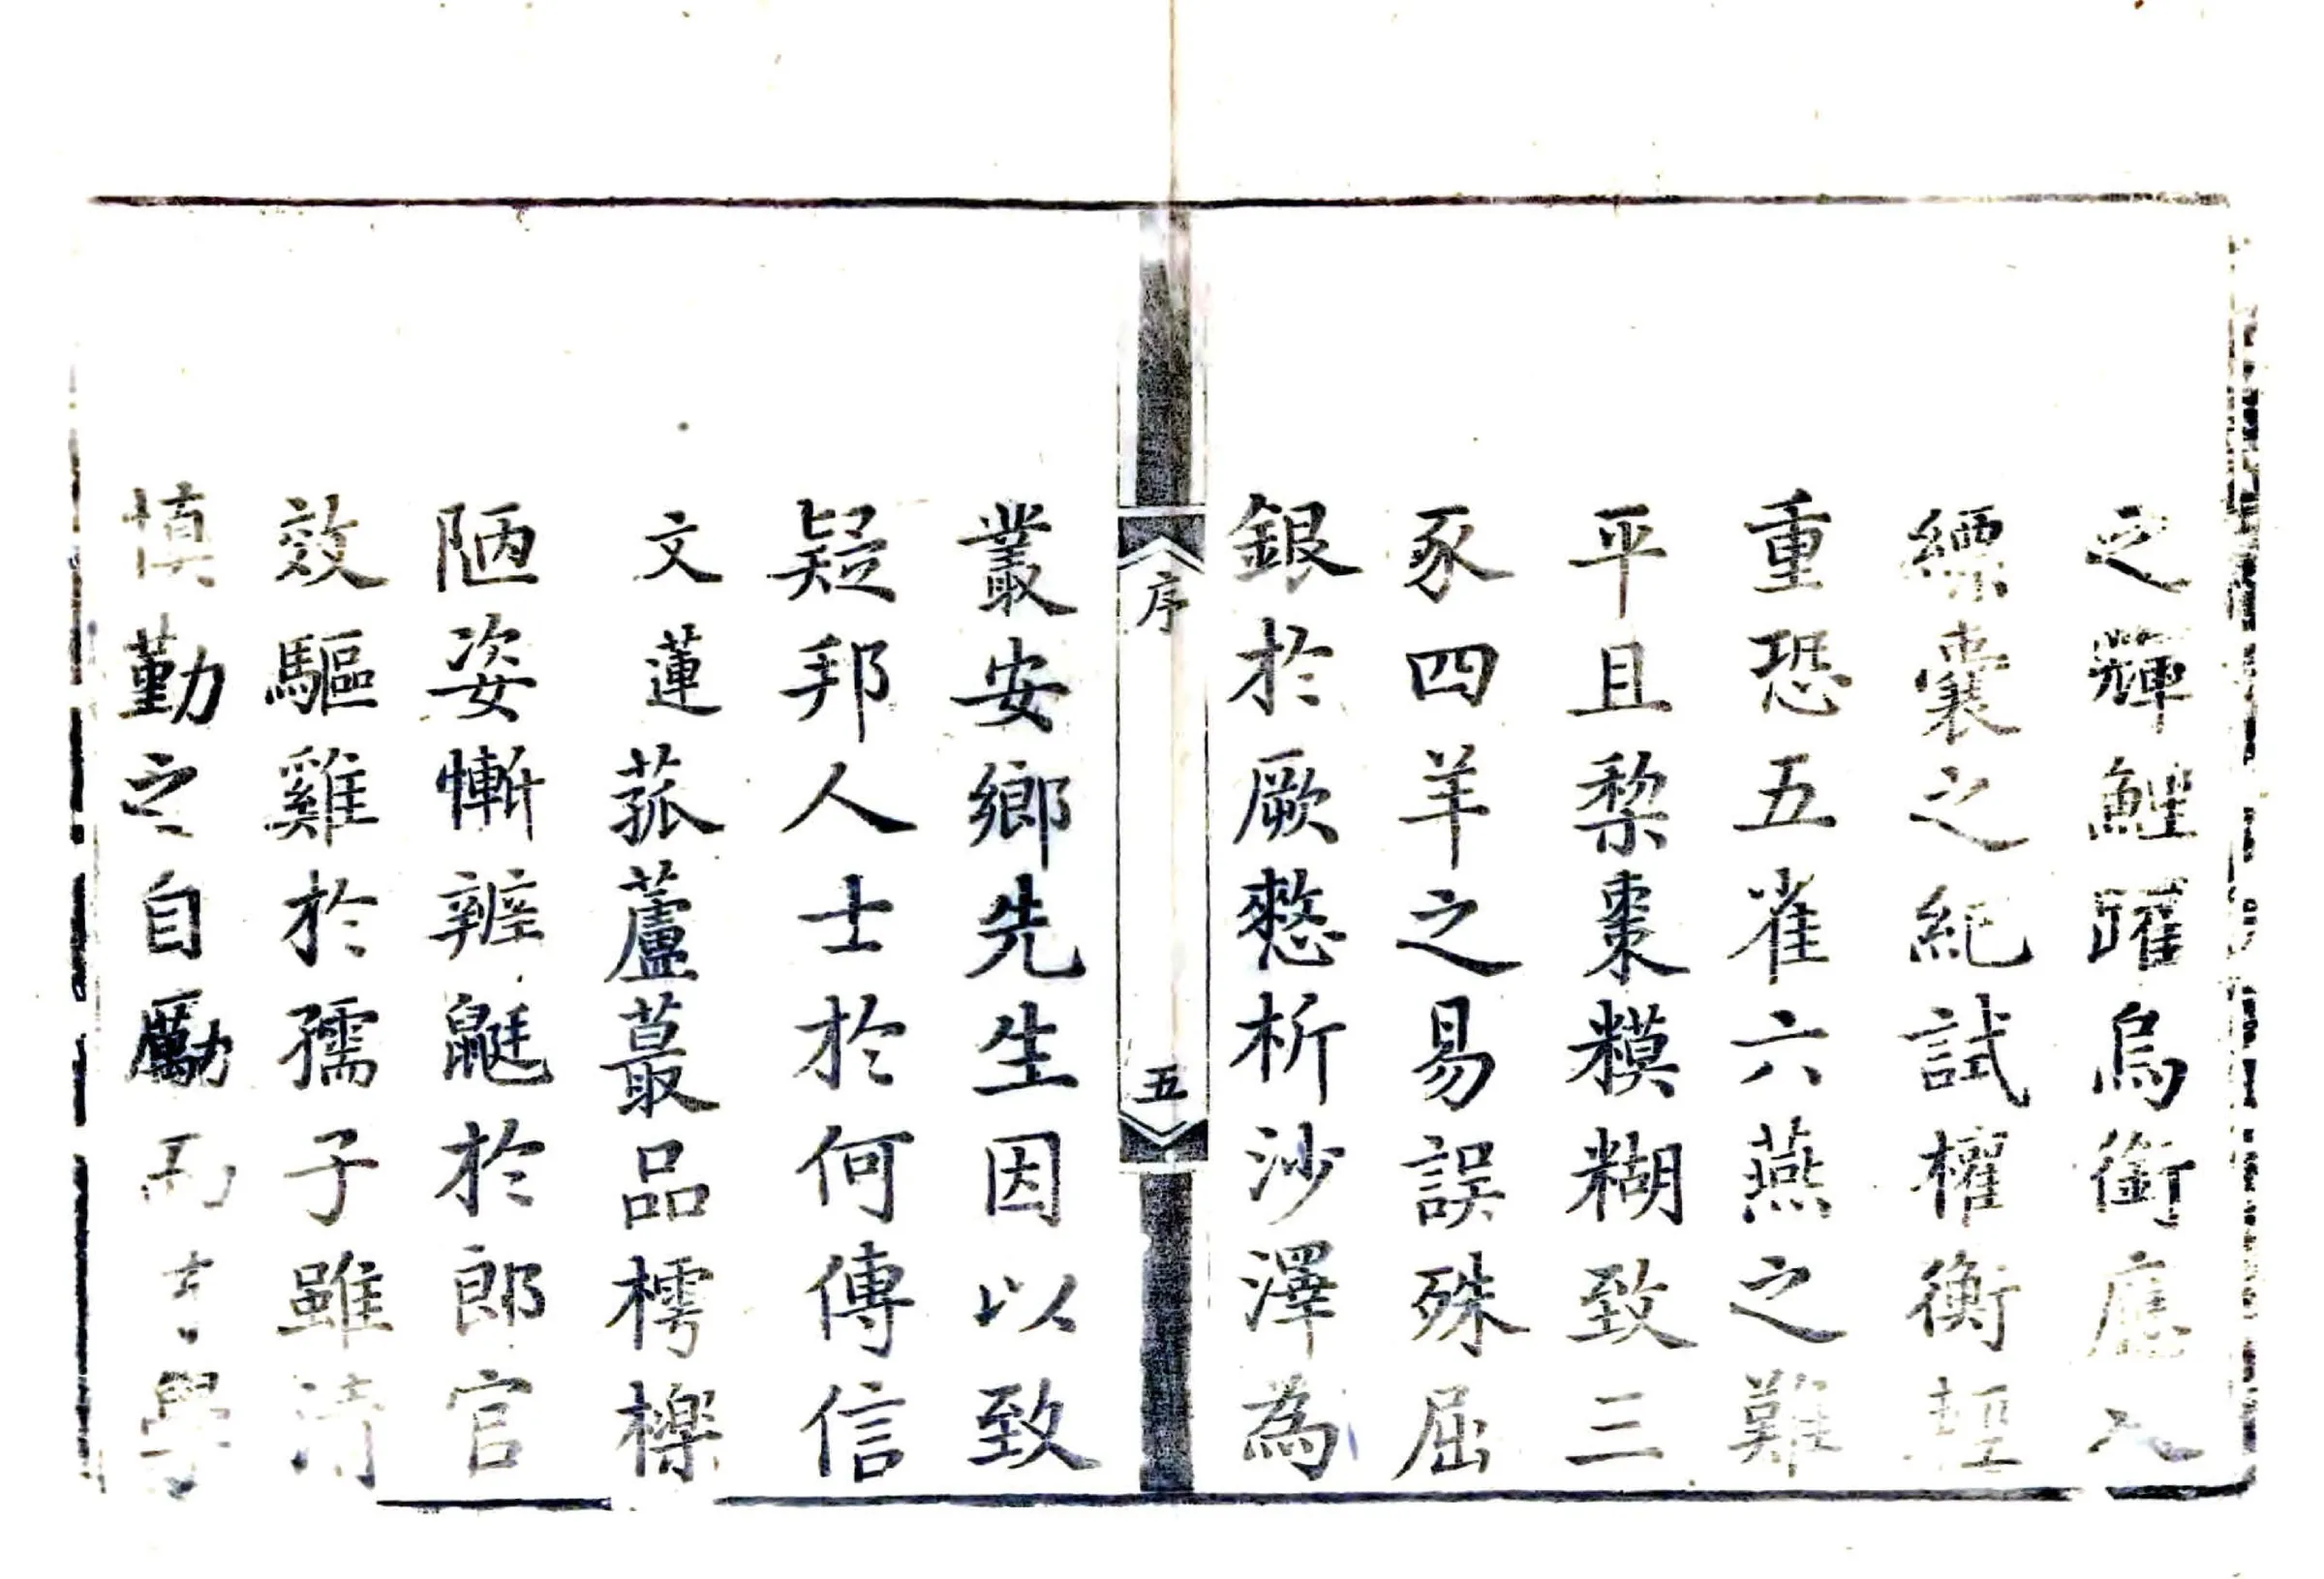 之輝鯉躍烏銜應入
縹囊之紀試權衡輕
重恐五雀六燕之難
平且棃棗糢糊致三
豕四羊之易誤殊屈
銀於厥憗析沙澤為
序
五
叢安鄉先生因以致
疑邦人士於何傳信
文蓮菰蘆蕞品樗櫟
陋姿慚辨鼮於郎官
效驅雞於孺子雖清
慎勤之自勵 學